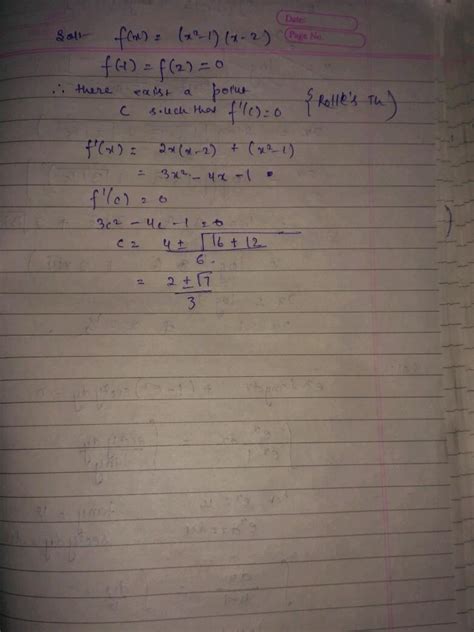 Date:
Page No.
Soln- f(x) = (x²-1)(x-2)
f(-1) = f(2) = 0
∴ there exist a point
c such that f'(c)=0 {Rolle's Th}
f'(x) = 2x(x-2) + (x²-1)
= 3x² - 4x - 1
f'(c) = 0
3c² - 4c - 1 = 0
c = 4 ± √16 + 12 / 6
= 2 ± √7 / 3